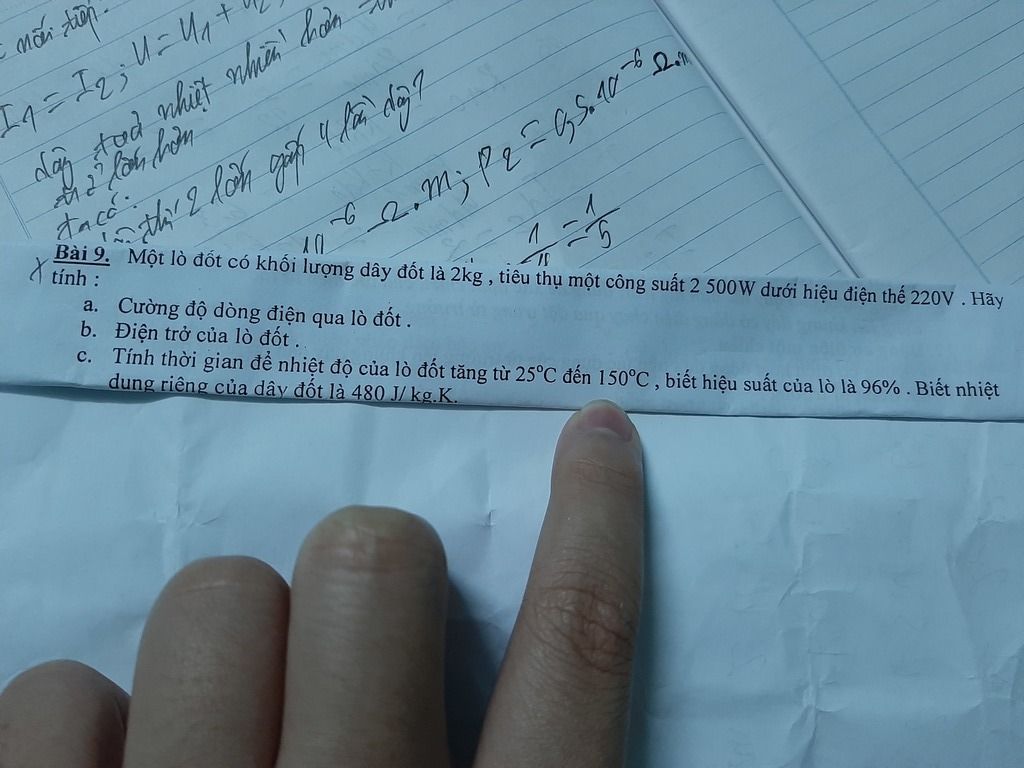 nối tiếp.
I1 = I2; U = U1 + U2
dây toả nhiệt nhiều hơn
lần hơn
ta có:
thì 2 lần gấp 4 lần dây?
10⁻⁶ Ω.m; ρ2 = 0,5.10⁻⁶ Ω.m
1/10 = 1/5
Bài 9. Một lò đốt có khối lượng dây đốt là 2kg , tiêu thụ một công suất 2 500W dưới hiệu điện thế 220V . Hãy
tính :
a. Cường độ dòng điện qua lò đốt .
b. Điện trở của lò đốt .
c. Tính thời gian để nhiệt độ của lò đốt tăng từ 25°C đến 150°C , biết hiệu suất của lò là 96% . Biết nhiệt
dung riêng của dây đốt là 480 J/ kg.K.